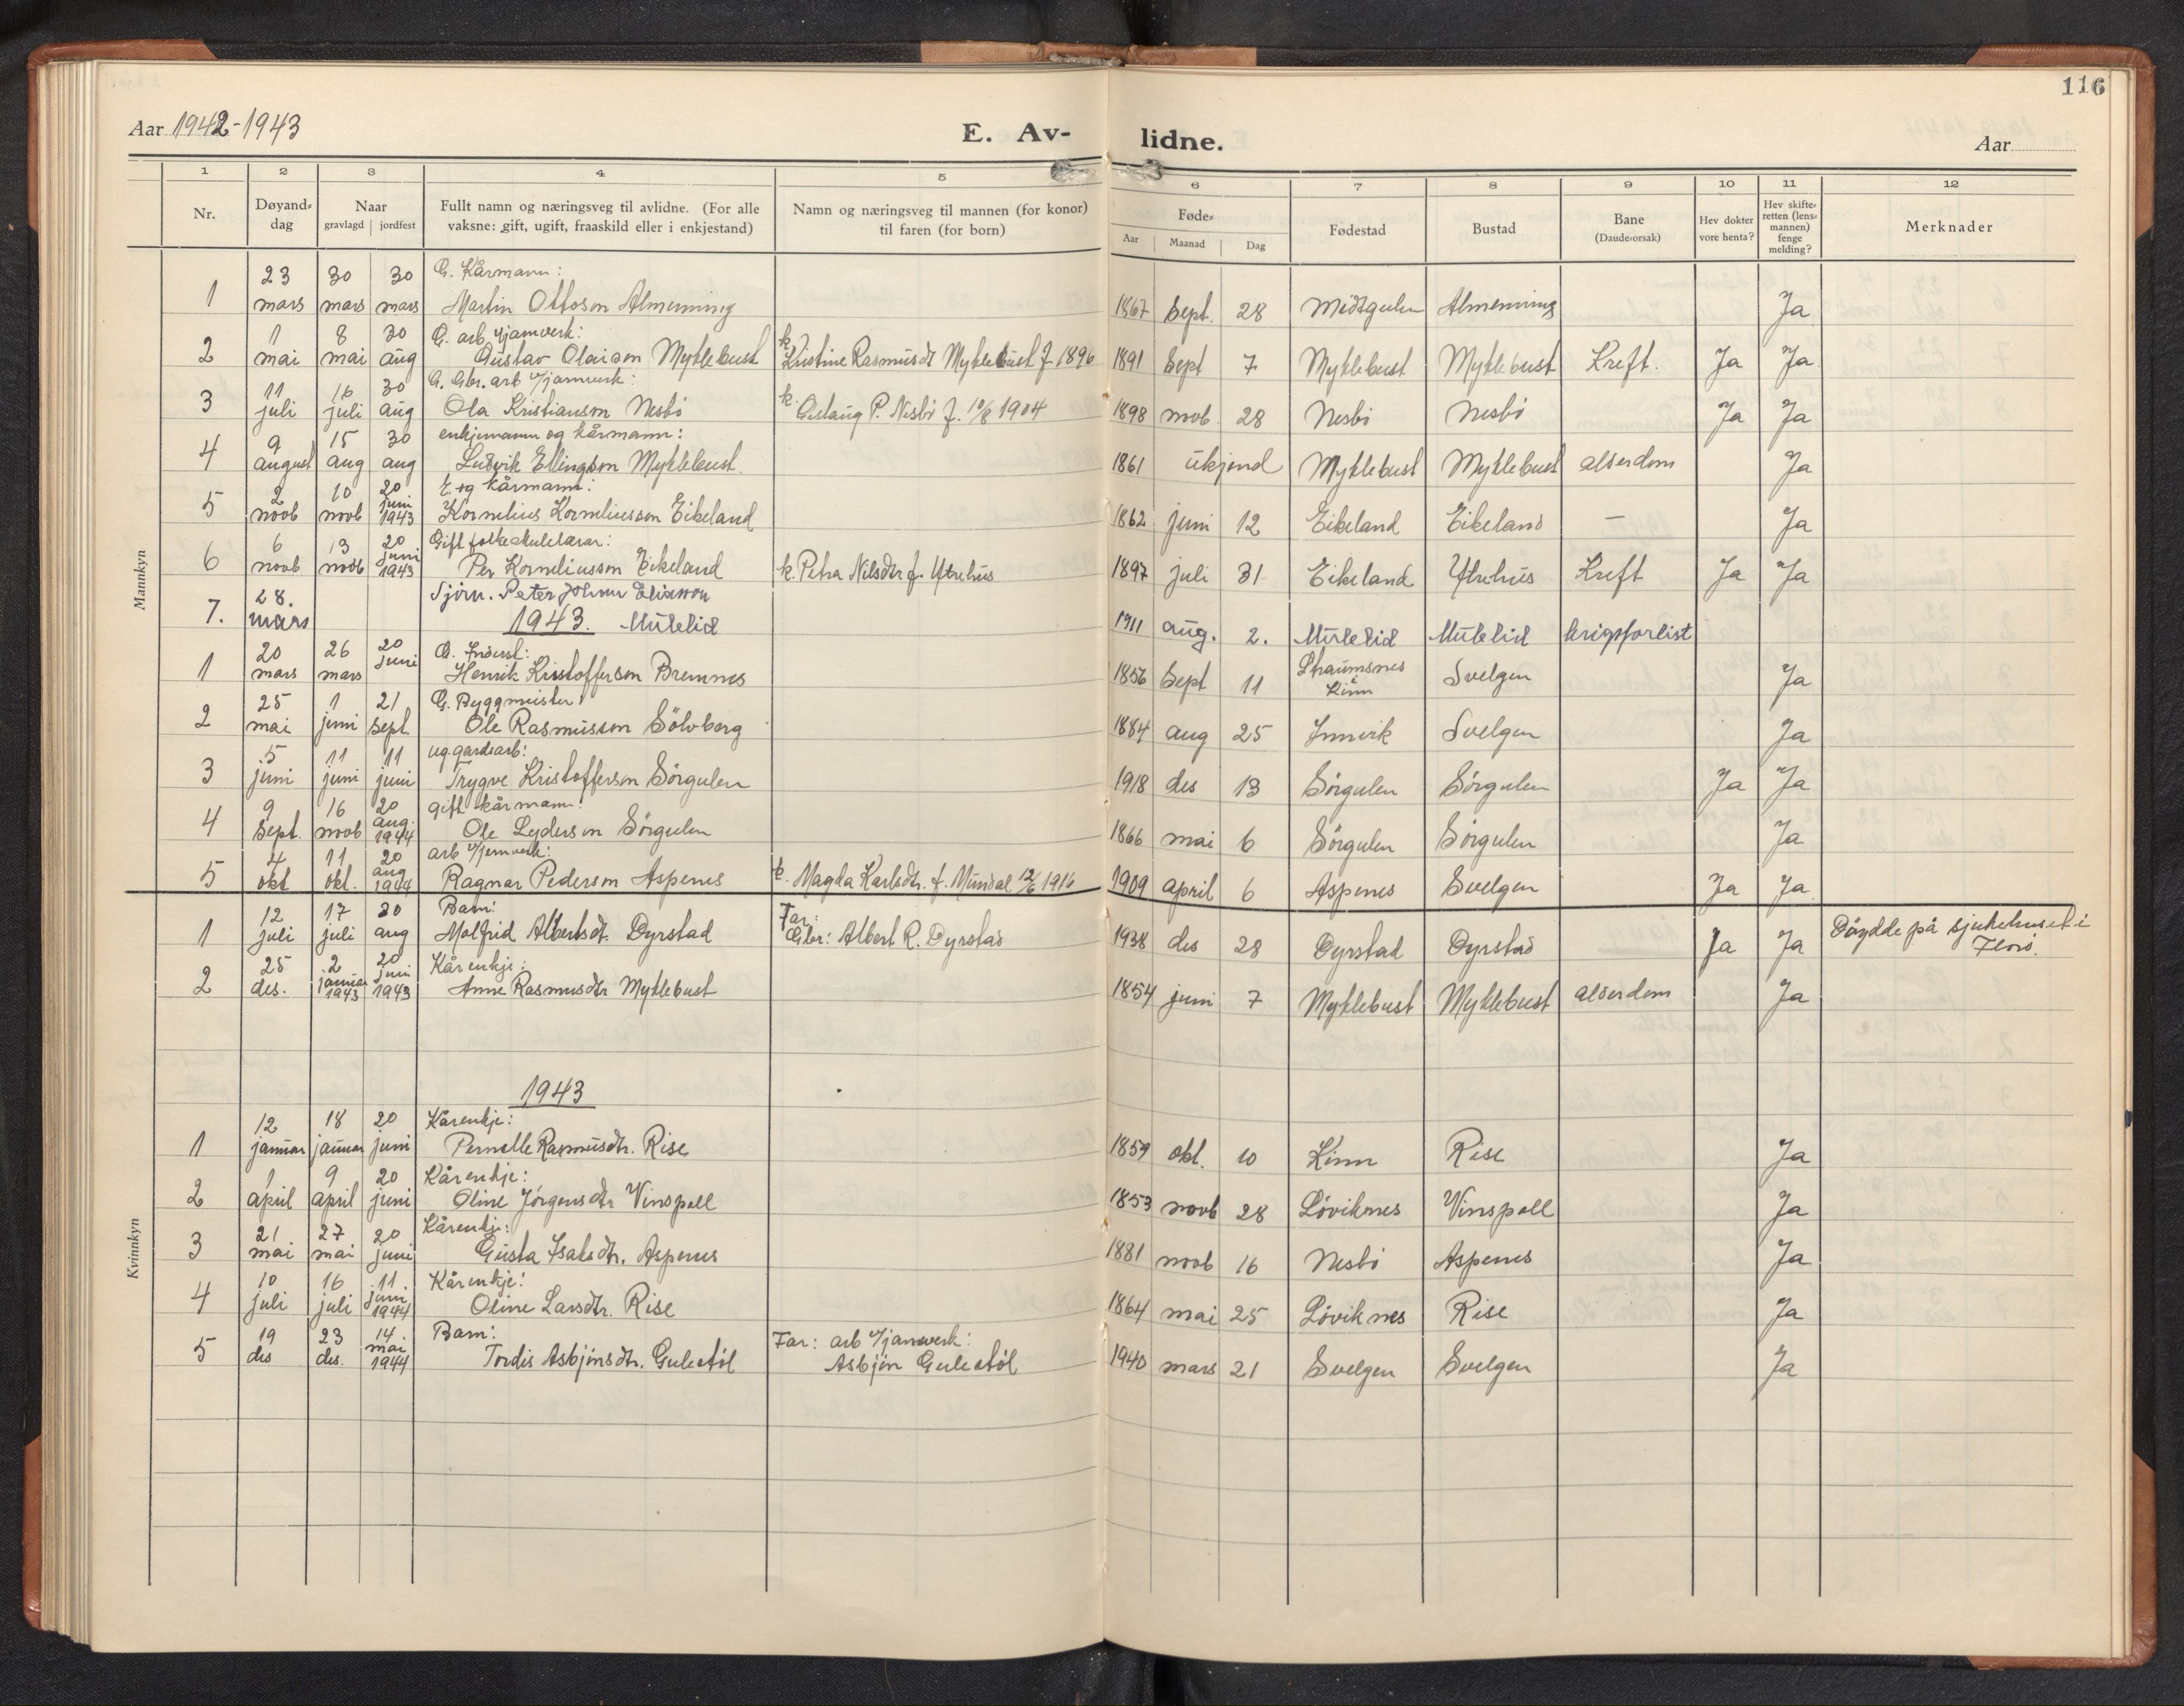 116
Aar 1942-1943
E. Av-
lidne.
Aar
1 2 3 4 5 6 7 8 9 10 11 12
Nr.
Døyand-
dag
Naar
gravlagd jordfest
Fullt namn og næringsveg til avlidne. (For alle
vaksne: gift, ugift, fraaskild eller i enkjestand)
Namn og næringsveg til mannen (for konor)
til faren (for born)
Føde-
Aar Maanad Dag
Fødestad
Bustad
Bane
(Daude-orsak)
Hev dokter
vore henta?
Hev skifte-
retten (lens-
mannen)
fenge
melding?
Merknader
Mannkyn
23 30 30 G. Kårmann:
1 mars mars mars Martin Ottoson Almenning 1867 Sept. 28 Midtgulen Almenning Ja
1 8 30 G. arb v/jarnverk:
2 mai mai aug Gustav Olaison Myklebust k. Kristine Rasmusdt Myklebust f 1896 1891 Sept 7 Myklebust Myklebust Kreft. Ja Ja
11 16 30 G. Gbr. arb v/jarnverk:
3 juli juli aug Ola Kristianson Nesbö k. Aslaug P. Nesbö f. 10/8 1904 1898 novb 28 Nesbö Nesbö Ja Ja
9 15 30 enkjemann og kårmann:
4 august aug aug Ludvik Ellingson Myklebust. 1861 ukjend Myklebust Myklebust alderdom Ja
2 10 20 E. og kårmann:
5 novb novb juni 1943 Kornelius Korneliusson Eikeland 1862 juni 12 Eikeland Eikeland — Ja
6 13 20 Gift folkeskulelærar:
6 novb novb juni 1943 Per Korneliusson Eikeland k. Petra Nilsdtr f. Ytrehus 1897 juli 31 Eikeland Ytrehus Kreft Ja Ja
28. Sjöm. Peter Johan Eliasson
7. mars 1943. Mulelid 1911 aug. 2. Mulelid Mulelid krigsforlist
20 26 20 G. Inderst:
1 mars mars juni Henrik Kristofferson Bremnes 1856 Sept 11 Straumsnes i Kinn Svelgen Ja
25 1 21 G. Byggmeister:
2 mai juni Sept. Ole Rasmusson Sölvberg 1884 aug 25 Innvik Svelgen Ja
5 11 11 ug. gardsarb:
3 juni juni juni Trygve Kristofferson Sörgulen 1918 des 13 Sörgulen Sörgulen Ja Ja
9 16 20 gift kårmann:
4 Sept. novb aug. 1944 Ole Lyderson Sörgulen 1866 mai 6 Sörgulen Sörgulen Ja
4 11 20 arb v/jernverk:
5 okt okt. aug 1944 Ragnar Pederson Aspenes k. Magda Karlsdtr. f. Mundal 12/6 1916 1909 april 6 Aspenes Svelgen Ja Ja
Kvinnkyn
12 17 30 Barn: Far:
1 juli juli aug Molfrid Albertsdt. Dyrstad Gbr: Albert R. Dyrstad 1938 des 28 Dyrstad Dyrstad Ja Ja Döydde på sjukehuset i
Florö.
25 2 20 Kårenkje:
2 des. januar 1943 juni 1943 Anne Rasmusdtr Myklebust 1854 juni 7 Myklebust Myklebust alderdom Ja
1943
12 18 20 Kårenkje:
1 januar januar juni Pernelle Rasmusdtr. Rise 1859 okt. 10 Kinn Rise Ja
1 9 20 Kårenkje:
2 april april juni Oline Jörgensdtr Vinspoll 1853 novb 28 Löviknes Vinspoll Ja
21 27 20 Kårenkje:
3 mai mai juni Gusta Isaksdtr. Aspenes 1881 novb 16 Nesbö Aspenes Ja
10 16 11. Kårenkje:
4 juli juli juni 1944 Oline Larsdtr. Rise 1864 mai 25 Löviknes Rise Ja
19 23 14. Barn: Far: arb v/jarnverk:
5 des des. mai 1944 Tordis Asbjönsdtr. Gulestöl Asbjön Gulestöl 1940 mars 21 Svelgen Svelgen Ja